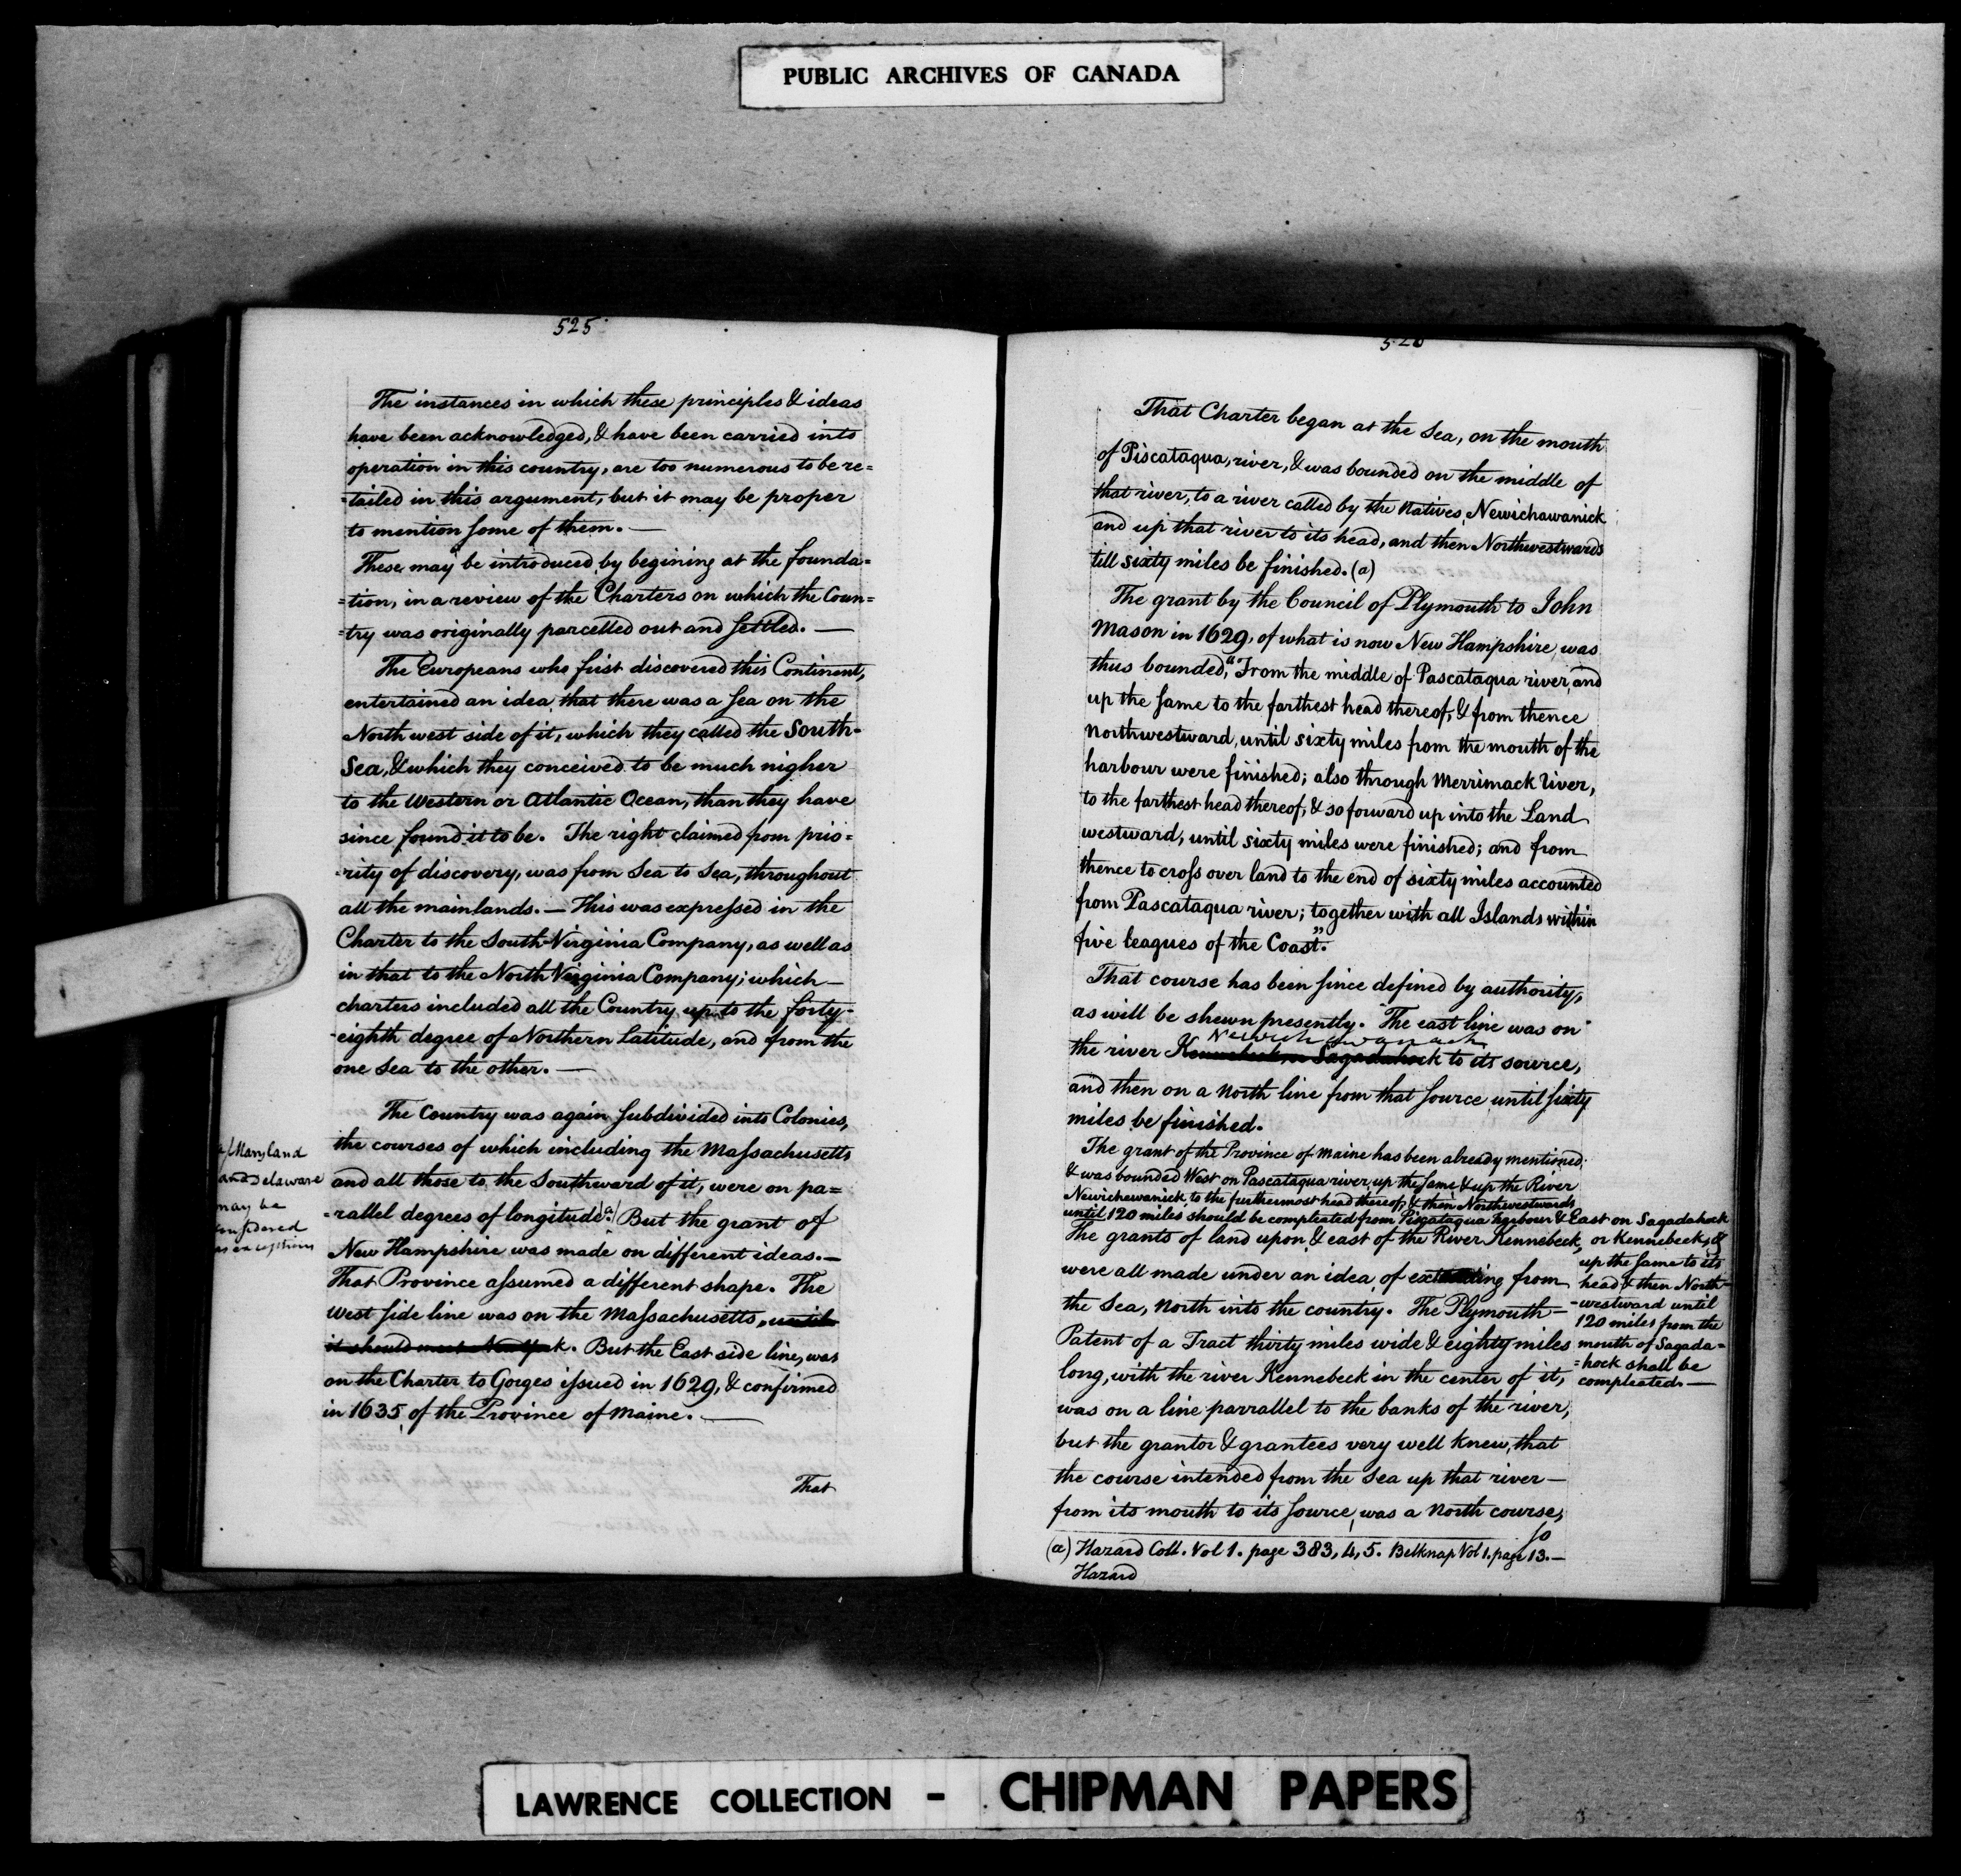 PUBLIC ARCHIVES OF CANADA
525
The instances in which these principles & ideas
have been acknowledged, & have been carried into
operation in this country, are too numerous to be re=
=tailed in this argument, but it may be proper
to mention some of them. —
These may be introduced by begining at the founda=
=tion, in a review of the Charters on which the Coun=
=try was originally parcelled out and settled. —
The Europeans who first discovered this Continent,
entertained an idea that there was a sea on the
North west side of it, which they called the South-
Sea, & which they conceived to be much nigher
to the Western or Atlantic Ocean, than they have
since found it to be. The right claimed from prio=
=rity of discovery, was from Sea to Sea, throughout
all the mainlands. — This was expressed in the
Charter to the South Virginia Company, as well as
in that to the North Virginia Company; which —
charters included all the Country up to the forty-
-eighth degree of Northern Latitude, and from the
one Sea to the other. —
The Country was again subdivided into Colonies,
the courses of which including the Massachusetts
and all those to the Southward of it, were on pa=
=rallel degrees of longitude. a) But the grant of
New Hampshire was made on different ideas. —
That Province assumed a different shape. The
west side line was on the Massachusetts, until
it should meet New York. But the East side line, was
on the Charter to Gorges issued in 1629, & confirmed
in 1635 of the Province of Maine. —
That
a/ Maryland
and Delaware
may be
considered
as exceptions
526
That Charter began at the Sea, on the mouth
of Piscataqua, river, & was bounded on the middle of
that river, to a river called by the Natives, Newichawanick
and up that river to its head, and then Northwestwards
till sixty miles be finished. (a)
The grant by the Council of Plymouth to John
Mason in 1629, of what is now New Hampshire, was
thus bounded, "From the middle of Pascataqua river, and
up the same to the farthest head thereof, & from thence
Northwestward, until sixty miles from the mouth of the
harbour were finished; also through Merrimack River,
to the farthest head thereof, & so forward up into the Land
westward, until sixty miles were finished; and from
thence to cross over land to the end of sixty miles accounted
from Pascataqua river; together with all Islands within
five leagues of the Coast."
That course has been since defined by authority,
as will be shewn presently. The east line was on
Newichawanack
the river Kennebeck or Sagadahock to its source,
and then on a North line from that source until sixty
miles be finished.
The grant of the Province of Maine has been already mentioned
& was bounded West on Pascataqua river, up the same & up the River
Newichewanick, to the furthermost head thereof, & then Northwestwards,
until 120 miles should be compleated from Piscataqua Harbour & East on Sagadahock
or Kennebeck, &
up the same to its
head & then North-
-westward until
120 miles from the
mouth of Sagada=
=hock shall be
compleated. —
The grants of land upon & east of the River Kennebeck,
were all made under an idea, of extending from
the Sea, North into the country. The Plymouth —
Patent of a Tract thirty miles wide & eighty miles
long, with the river Kennebeck in the center of it,
was on a line parrallel to the banks of the river,
but the grantor & grantees very well knew, that
the course intended from the Sea up that river —
from its mouth to its source, was a North course,
so
(a) Hazard Coll. Vol 1. page 383, 4, 5. Belknap Vol 1. page 13. —
Hazard
LAWRENCE COLLECTION - CHIPMAN PAPERS